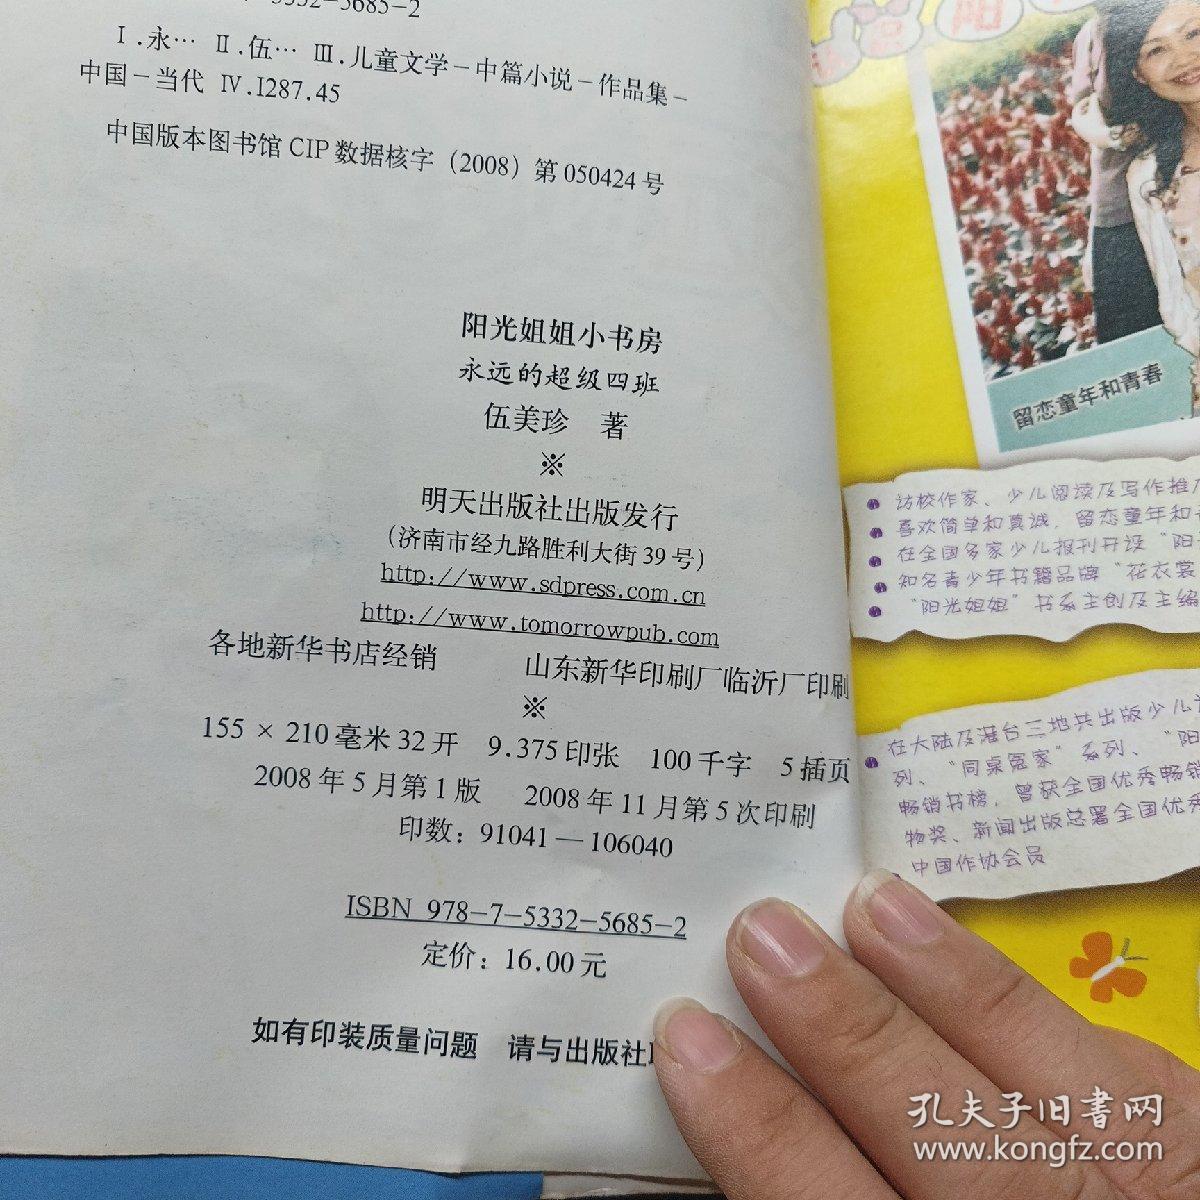 5332-5685-2
Ⅰ.永… Ⅱ.伍… Ⅲ.儿童文学-中篇小说-作品集-
中国-当代 Ⅳ.I287.45
中国版本图书馆 CIP 数据核字 (2008) 第 050424 号
阳光姐姐小书房
永远的超级四班
伍美珍 著
※
明天出版社出版发行
(济南市经九路胜利大街 39 号)
http://www.sdpress.com.cn
http://www.tomorrowpub.com
各地新华书店经销 山东新华印刷厂临沂厂印刷
※
155 × 210 毫米 32 开 9.375 印张 100 千字 5 插页
2008 年 5 月第 1 版 2008 年 11 月第 5 次印刷
印数: 91041—106040
ISBN 978-7-5332-5685-2
定价: 16.00 元
如有印装质量问题 请与出版社
阳
留恋童年和青春
访校作家、少儿阅读及写作推
喜欢简单和真诚，留恋童年和
在全国多家少儿报刊开设“阳
知名青少年书籍品牌“花衣裳
“阳光姐姐”书系主创及主编
在大陆及港台三地共出版少儿
列、“同桌冤家”系列、“阳
畅销书榜，曾获全国优秀畅销
物奖、新闻出版总署全国优秀
中国作协会员
孔夫子旧书网
www.kongfz.com